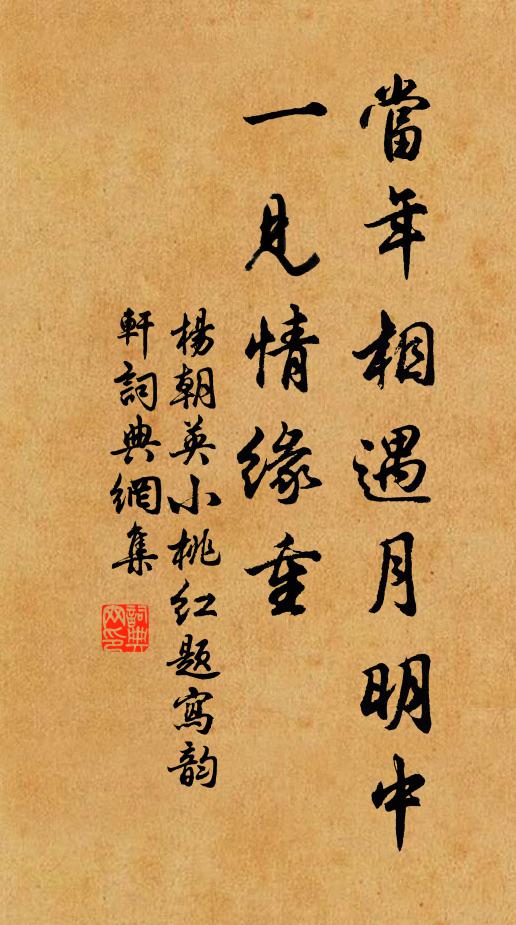 當年相遇月明中
一見情緣重
楊朝英小桃紅題寫韵
軒詞典網集
詞典
网